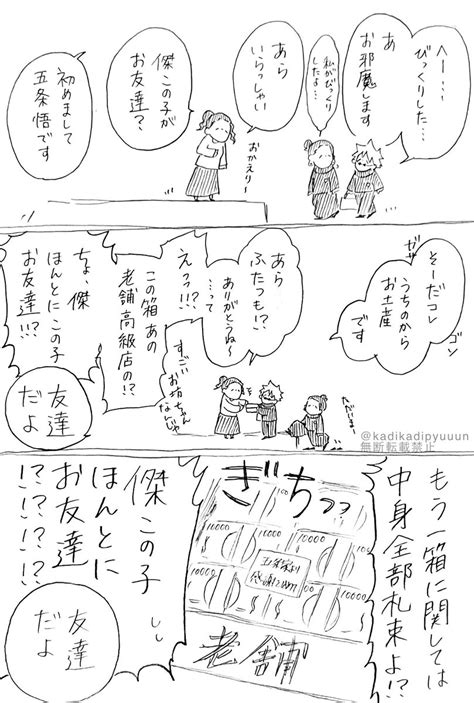 へー…
びっくりした…
あ
お邪魔します
私がびっくり
したよ…
あら
いらっしゃい
おかえりー
傑この子が
お友達?
初めまして
五条悟です
そーだコレ
うちのから
お土産
です
ゴン
あら
ふたつも!?
ありがとうね〜
…って
えっっ!!?
この箱あの
老舗高級店の!?
すごい
お坊ちゃん
なんじゃ
ちょ、傑
ほんとにこの子
お友達!?
友達
だよ
@kadikadipyuuun
無断転載禁止
もう一箱に関しては
中身全部札束よ!?
ぎちっっ
10000
10000
10000
10000
10000
五条家より
感謝を込めて
老舗
傑この子
ほんとに
お友達
!?!?!?!?
友達
だよ